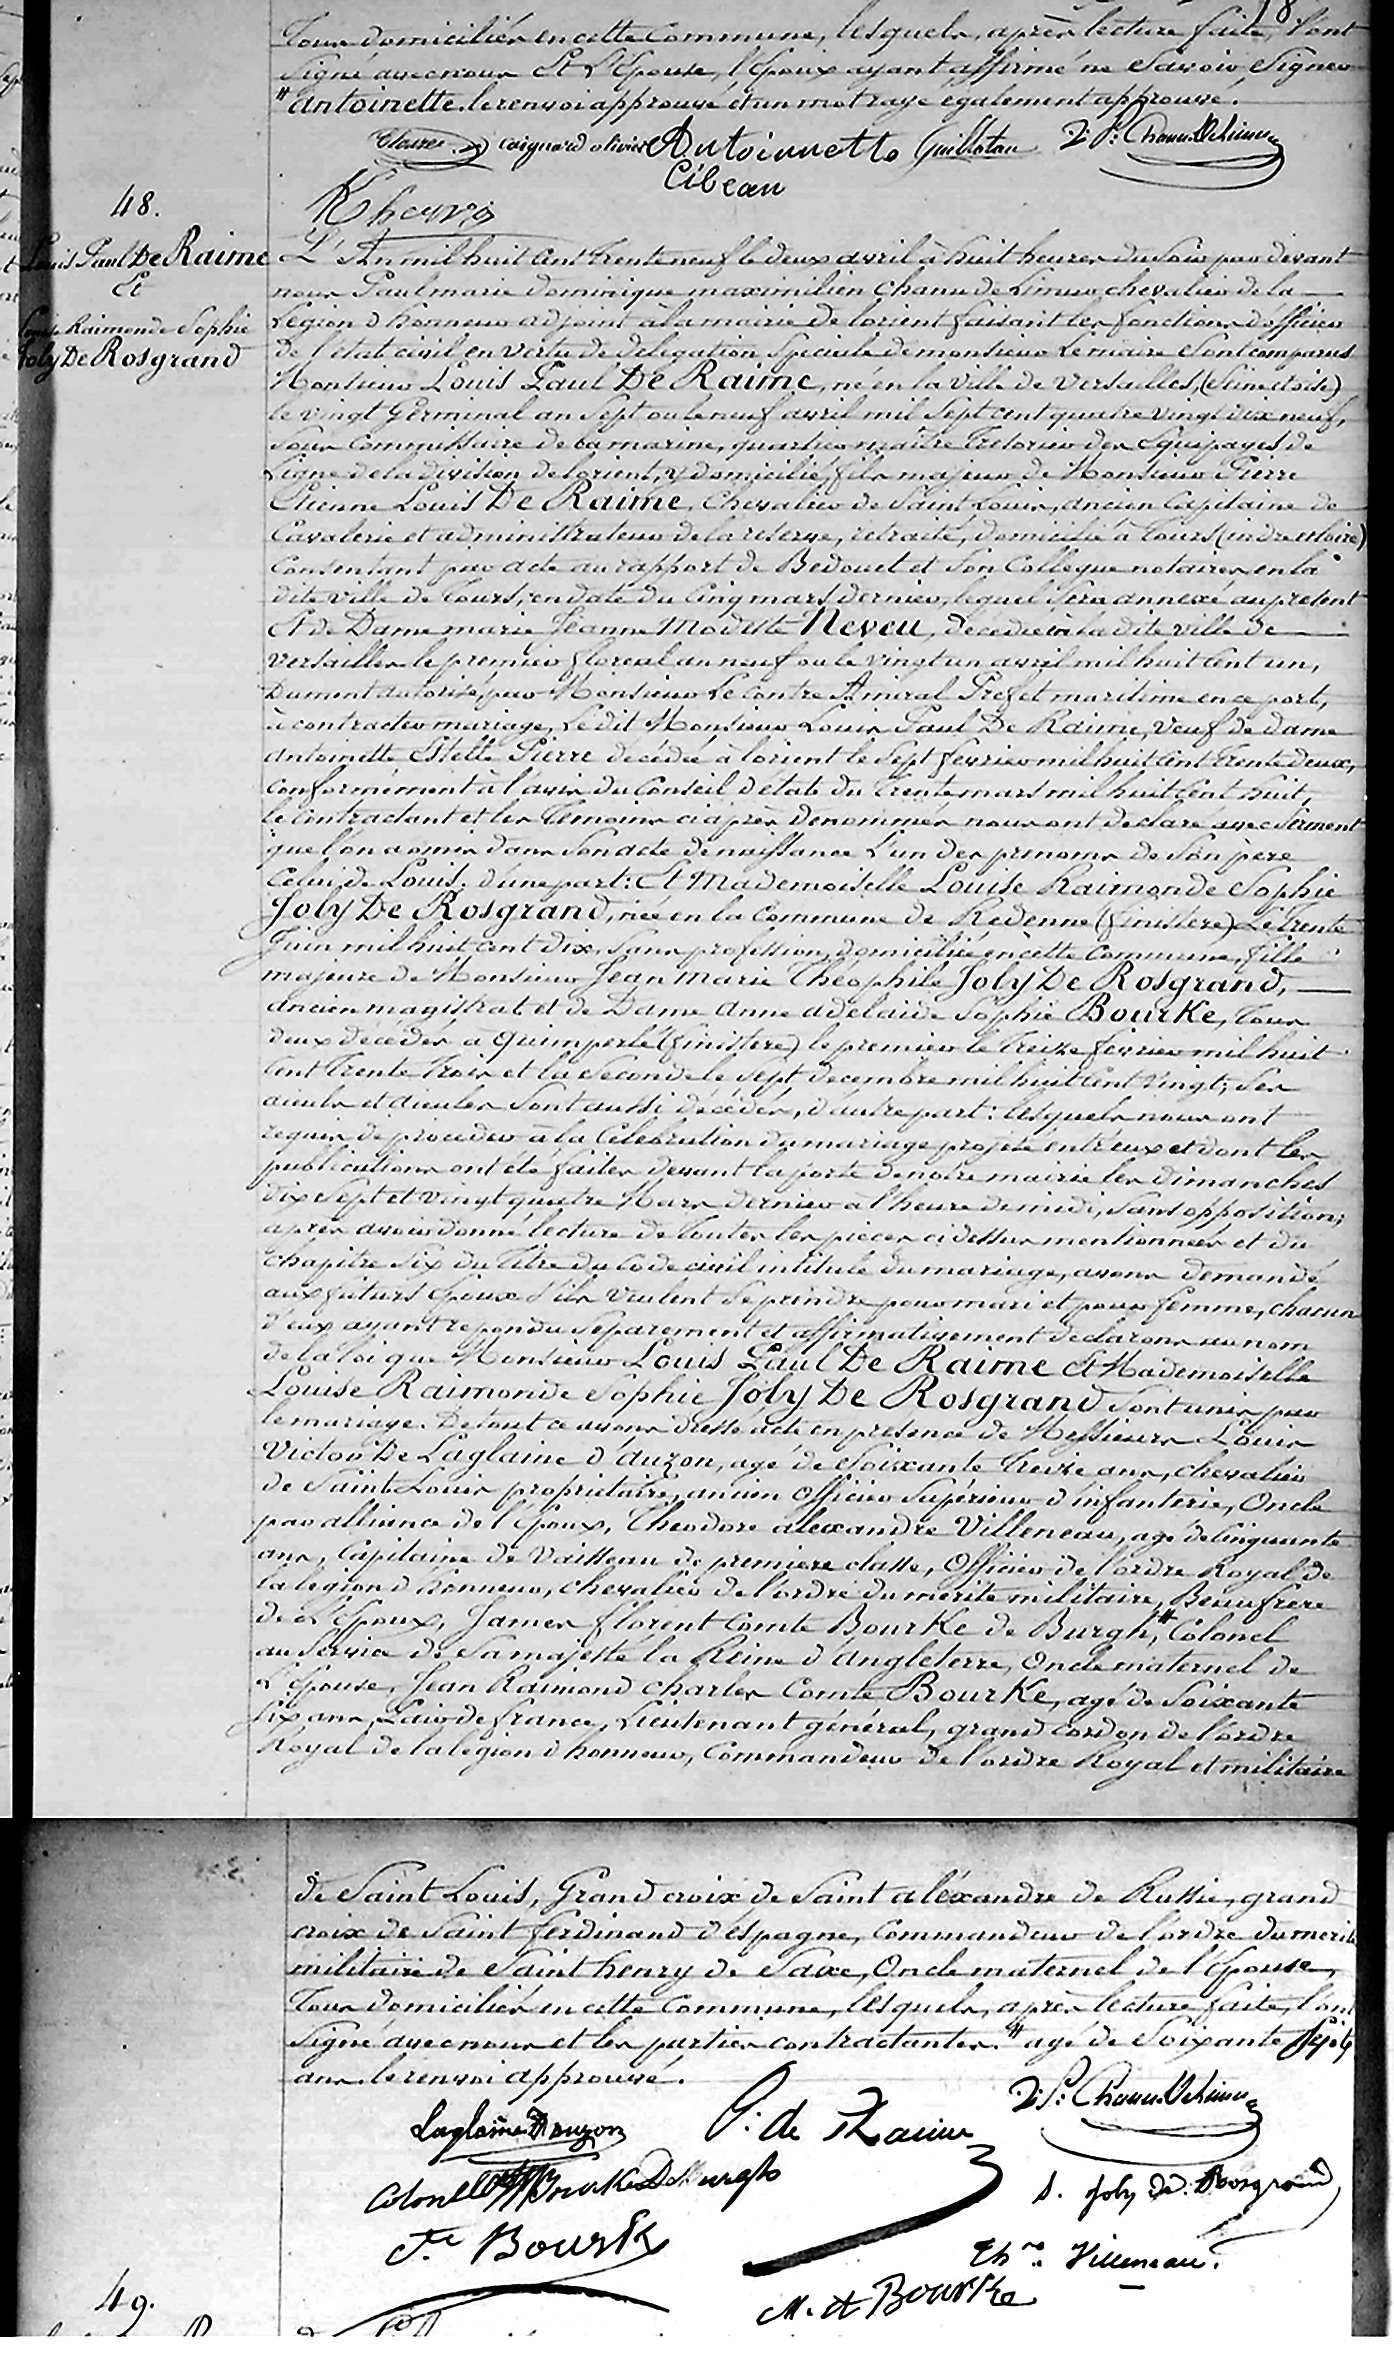 18
Tous domiciliés en cette Commune, lesquels, après lecture faite, l'ont
Signé avec nous Et l'Epouse, l'Epoux ayant affirmé ne Savoir Signer
# Antoinette. le renvoi approuvé et un mot rayé egalement approuvé.
caignard olivier Antoinette Guillotau D. P. Chanu De Limur
Cibeau
48.
Louis Paul De Raime
Et
Louise Raimonde Sophie
Joly De Rosgrand
L'An mil huit Cent trente neuf le deux avril à huit heures du Soir par devant
nous Paul marie dominique maximilien Chanu de Limur chevalier de la
Légion d'honneur adjoint à la mairie de lorient faisant les fonctions d'officier
de l'état civil en vertu de délégation Spéciale de monsieur Le maire Sont comparus
Monsieur Louis Paul De Raime, né en la Ville de Versailles, (Seine et oise)
le vingt Germinal an Sept ou le neuf avril mil Sept cent quatre vingt dix neuf,
Sous Commissaire de la marine, quartier maître Trésorier des Equipages de
Ligne de la division de lorient, y domicilié, fils majeur de Monsieur Pierre
Etienne Louis De Raime, Chevalier de Saint Louis, ancien Capitaine de
Cavalerie et administrateur de la réserve, retraité, domicilié à Tours (indre et loire)
Consentant par acte au rapport de Bedouet et Son Collègue notaires en la
dite ville de Tours, en date du Cinq mars dernier, lequel Sera annexé au présent
Et de Dame marie Jeanne Modeste Neveu, décédée en la dite ville de
Versailles le premier floreal an neuf ou le vingt un avril mil huit Cent un,
Dument autorisé, par Monsieur Le Contre Amiral Prefet maritime en ce port,
à contracter mariage, Le dit Monsieur Louis Paul De Raime, Veuf de dame
antoinette Estelle Pierre décédée à lorient le Sept fevrier mil huit Cent Trente deux,
conformément à l'avis du Conseil d'état du Trente mars mil huit Cent huit,
le Contractant et les Témoins ci après dénommés nous ont déclaré avec Serment
que l'on a omis dans Son acte de naissance l'un des prenoms de Son père
Celui de Louis, d'une part: Et Mademoiselle Louise Raimonde Sophie
Joly De Rosgrand, née en la Commune de Redenné (finistère) Le trente
Juin mil huit Cent dix, Sans profession, domiciliée en cette Commune, fille
majeure de Monsieur Jean Marie Théophile Joly De Rosgrand,
ancien magistrat et de Dame Anne adélaide Sophie Bourke, Tous
deux décédés à Quimperlé (finistère) le premier le Treize fevrier mil huit
Cent Trente Trois et la Seconde le Sept décembre mil huit Cent Vingt; Ses
aieuls et aieules Sont aussi décédés, d'autre part: lesquels nous ont
requis de procéder à la Célébration du mariage projeté entr'eux et dont les
publications ont été faites devant la porte de notre mairie les dimanches
dix Sept et Vingt quatre Mars dernier à l'heure de midi, Sans opposition;
après avoir donné lecture de toutes les pièces ci dessus mentionnées et du
Chapitre Six du Titre du Code civil intitulé du mariage, avons demandé
aux futurs Epoux S'ils Veulent Se prendre pour mari et pour femme, chacun
d'eux ayant répondu Séparément et affirmativement déclarons au nom
de la loi que Monsieur Louis Paul De Raime Et Mademoiselle
Louise Raimonde Sophie Joly De Rosgrand Sont unis par
le mariage. De tout ce avons dressé acte en présence de Messieurs Louis
Victor De Laglaine d'auzon, agé de Soixante Treize ans, chevalier
de Saint Louis, propriétaire, ancien Officier Supérieur d'infanterie, Oncle
par alliance de l'Epoux, Théodore alexandre Villeneau, agé de Cinquante
ans, Capitaine de Vaisseau de premiere classe, Officier de l'ordre Royal de
la légion d'honneur, chevalier de l'ordre du mérite militaire, Beaufrère
de L'Epoux, James florent Comte Bourke de Burgh, # Colonel
au Service de Sa majesté la Reine d'Angleterre, Oncle maternel de
L'Epouse, Jean Raimond charles Comte Bourke, agé de Soixante
Six ans, Pair de france, Lieutenant général, grand cordon de l'ordre
Royal de la légion d'honneur, Commandeur de l'ordre Royal et militaire
de Saint Louis, Grand croix de Saint aléxandre de Russie, grand
croix de Saint ferdinand d'Espagne, Commandeur de l'ordre du merite
militaire de Saint henry de Saxe, Oncle maternel de l'Epouse,
Tous domiciliés en cette Commune, lesquels, après lecture faite, l'ont
Signé avec nous et les parties contractantes. # agé de Soixante Sept
ans. le renvoi approuvé.
Laglaine D'auzon P. de Raime D. P. Chanu De Limur
Colonel Bourke De Burgh S. Joly de Rosgrand
Cte Bourke Thre Villeneau.
M. A Bourke
49.